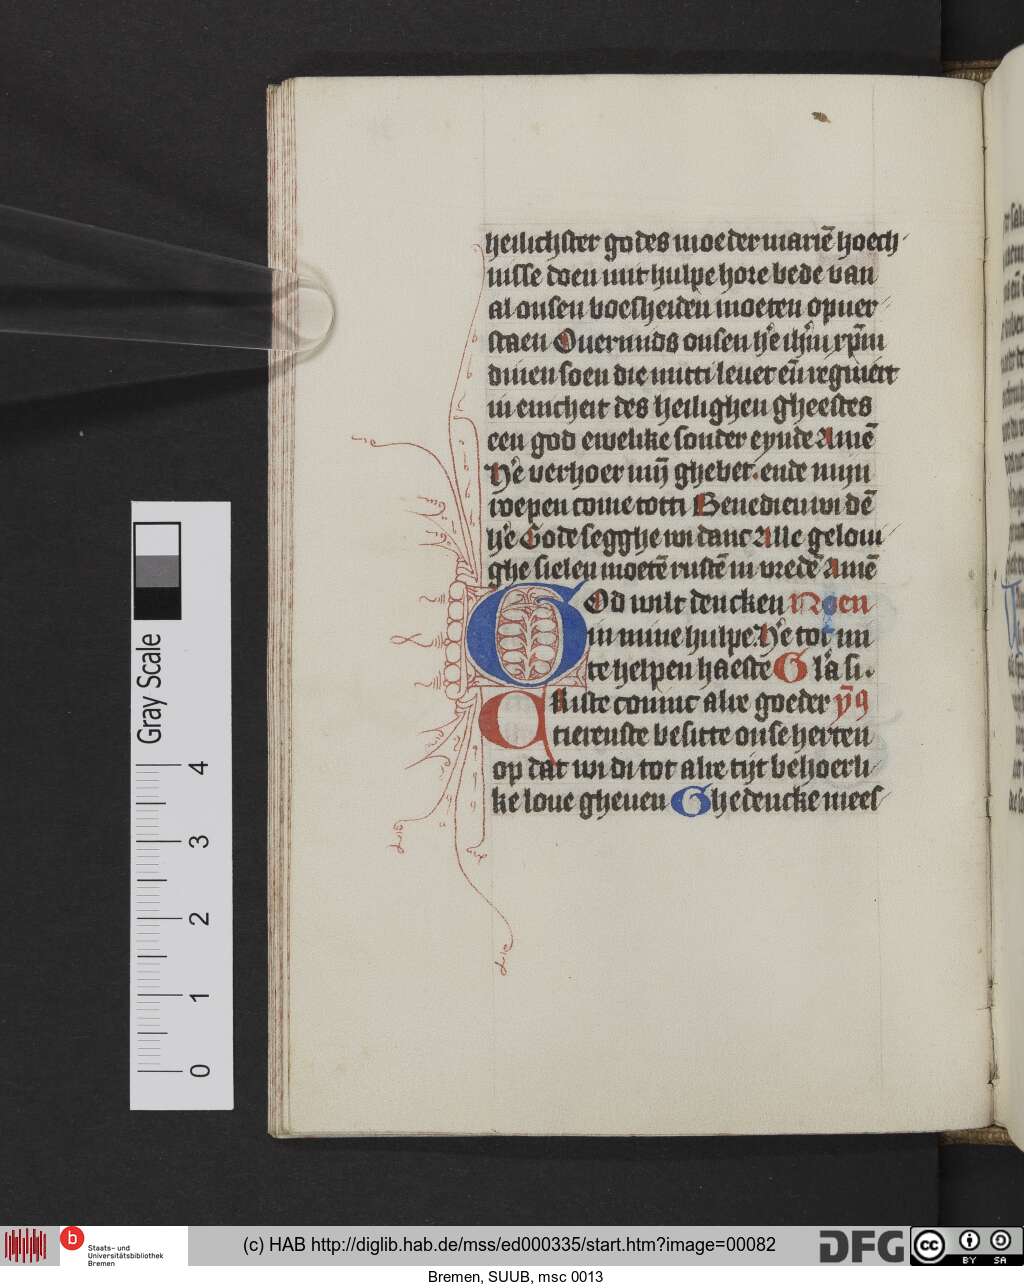 heilichster godes moeder mariē hoech
nisse doen mit hulpe hore bede van
al onsen boesheiden moeten opuer
staen Ouermids onsen hē ihm xpm
dinen soen die mitti leuet eñ regniert
in einicheit des heilighen gheestes
een god ewelike sonder eynde Amē
Hē verhoer mijn ghebet. ende mijn
roepen come totti Benedien wi dē
hē Gode segghe wi danc Alle gelouı
ghe sielen moetē rustē in vredē Amē
God wilt dencken Noen
in mine hulpe. Hē tot mi
te helpen haeste Gla si.
Kiste comut alre goeder ymps
C tierenste besitte onse herten
op dat wi di tot alre tijt behoerli
ke loue gheuen Ghedencke mees
Gray Scale
4
3
2
1
0
b
Staats- und
Universitätsbibliothek
Bremen
(c) HAB http://diglib.hab.de/mss/ed000335/start.htm?image=00082
DFG
cc
BY SA
Bremen, SUUB, msc 0013